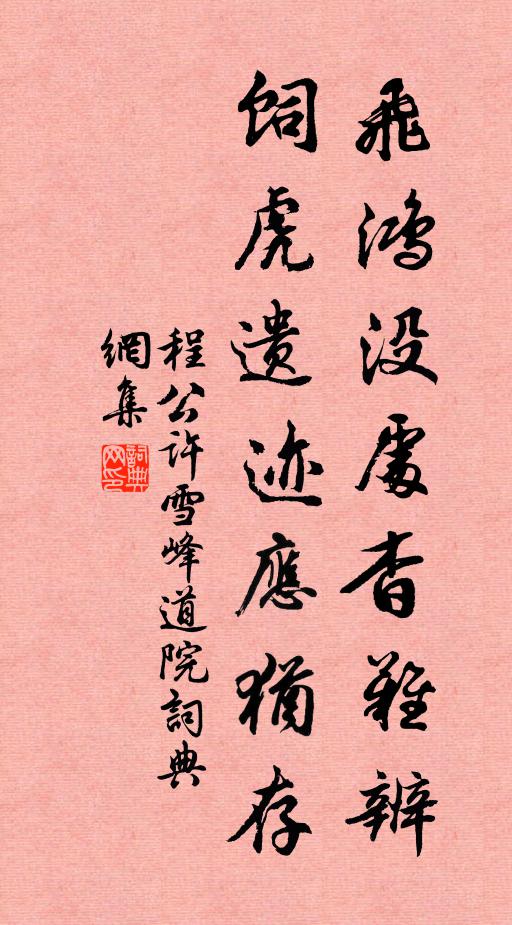 飛鴻没處杳難辨
飼虎遺迹應猶存
程公許雪峰道院詞典
網集
詞典
网印